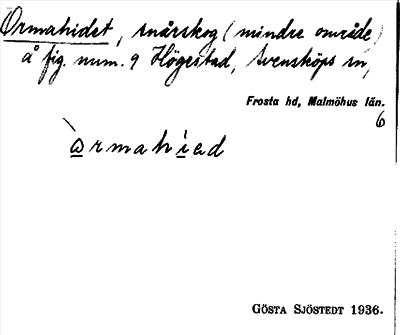 Ormahidet, snårskog (mindre område)
å fig. num. 9 Högestad, Svensköps sn,
Frosta hd, Malmöhus län.
6
ormahiad
GÖSTA SJÖSTEDT 1936.